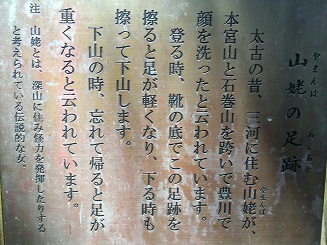 山姥の足跡
やまんば
あしあと
太古の昔、三河に住む山姥が、
やまんば
本宮山と石巻山を跨いで豊川で
顔を洗ったと云われています。
登る時、靴の底でこの足跡を
擦ると足が軽くなり、下る時も
擦って下山します。
下山の時、忘れて帰ると足が
重くなると云われています。
注 山姥とは、深山に住み怪力を発揮したりする
と考えられている伝説的な女。